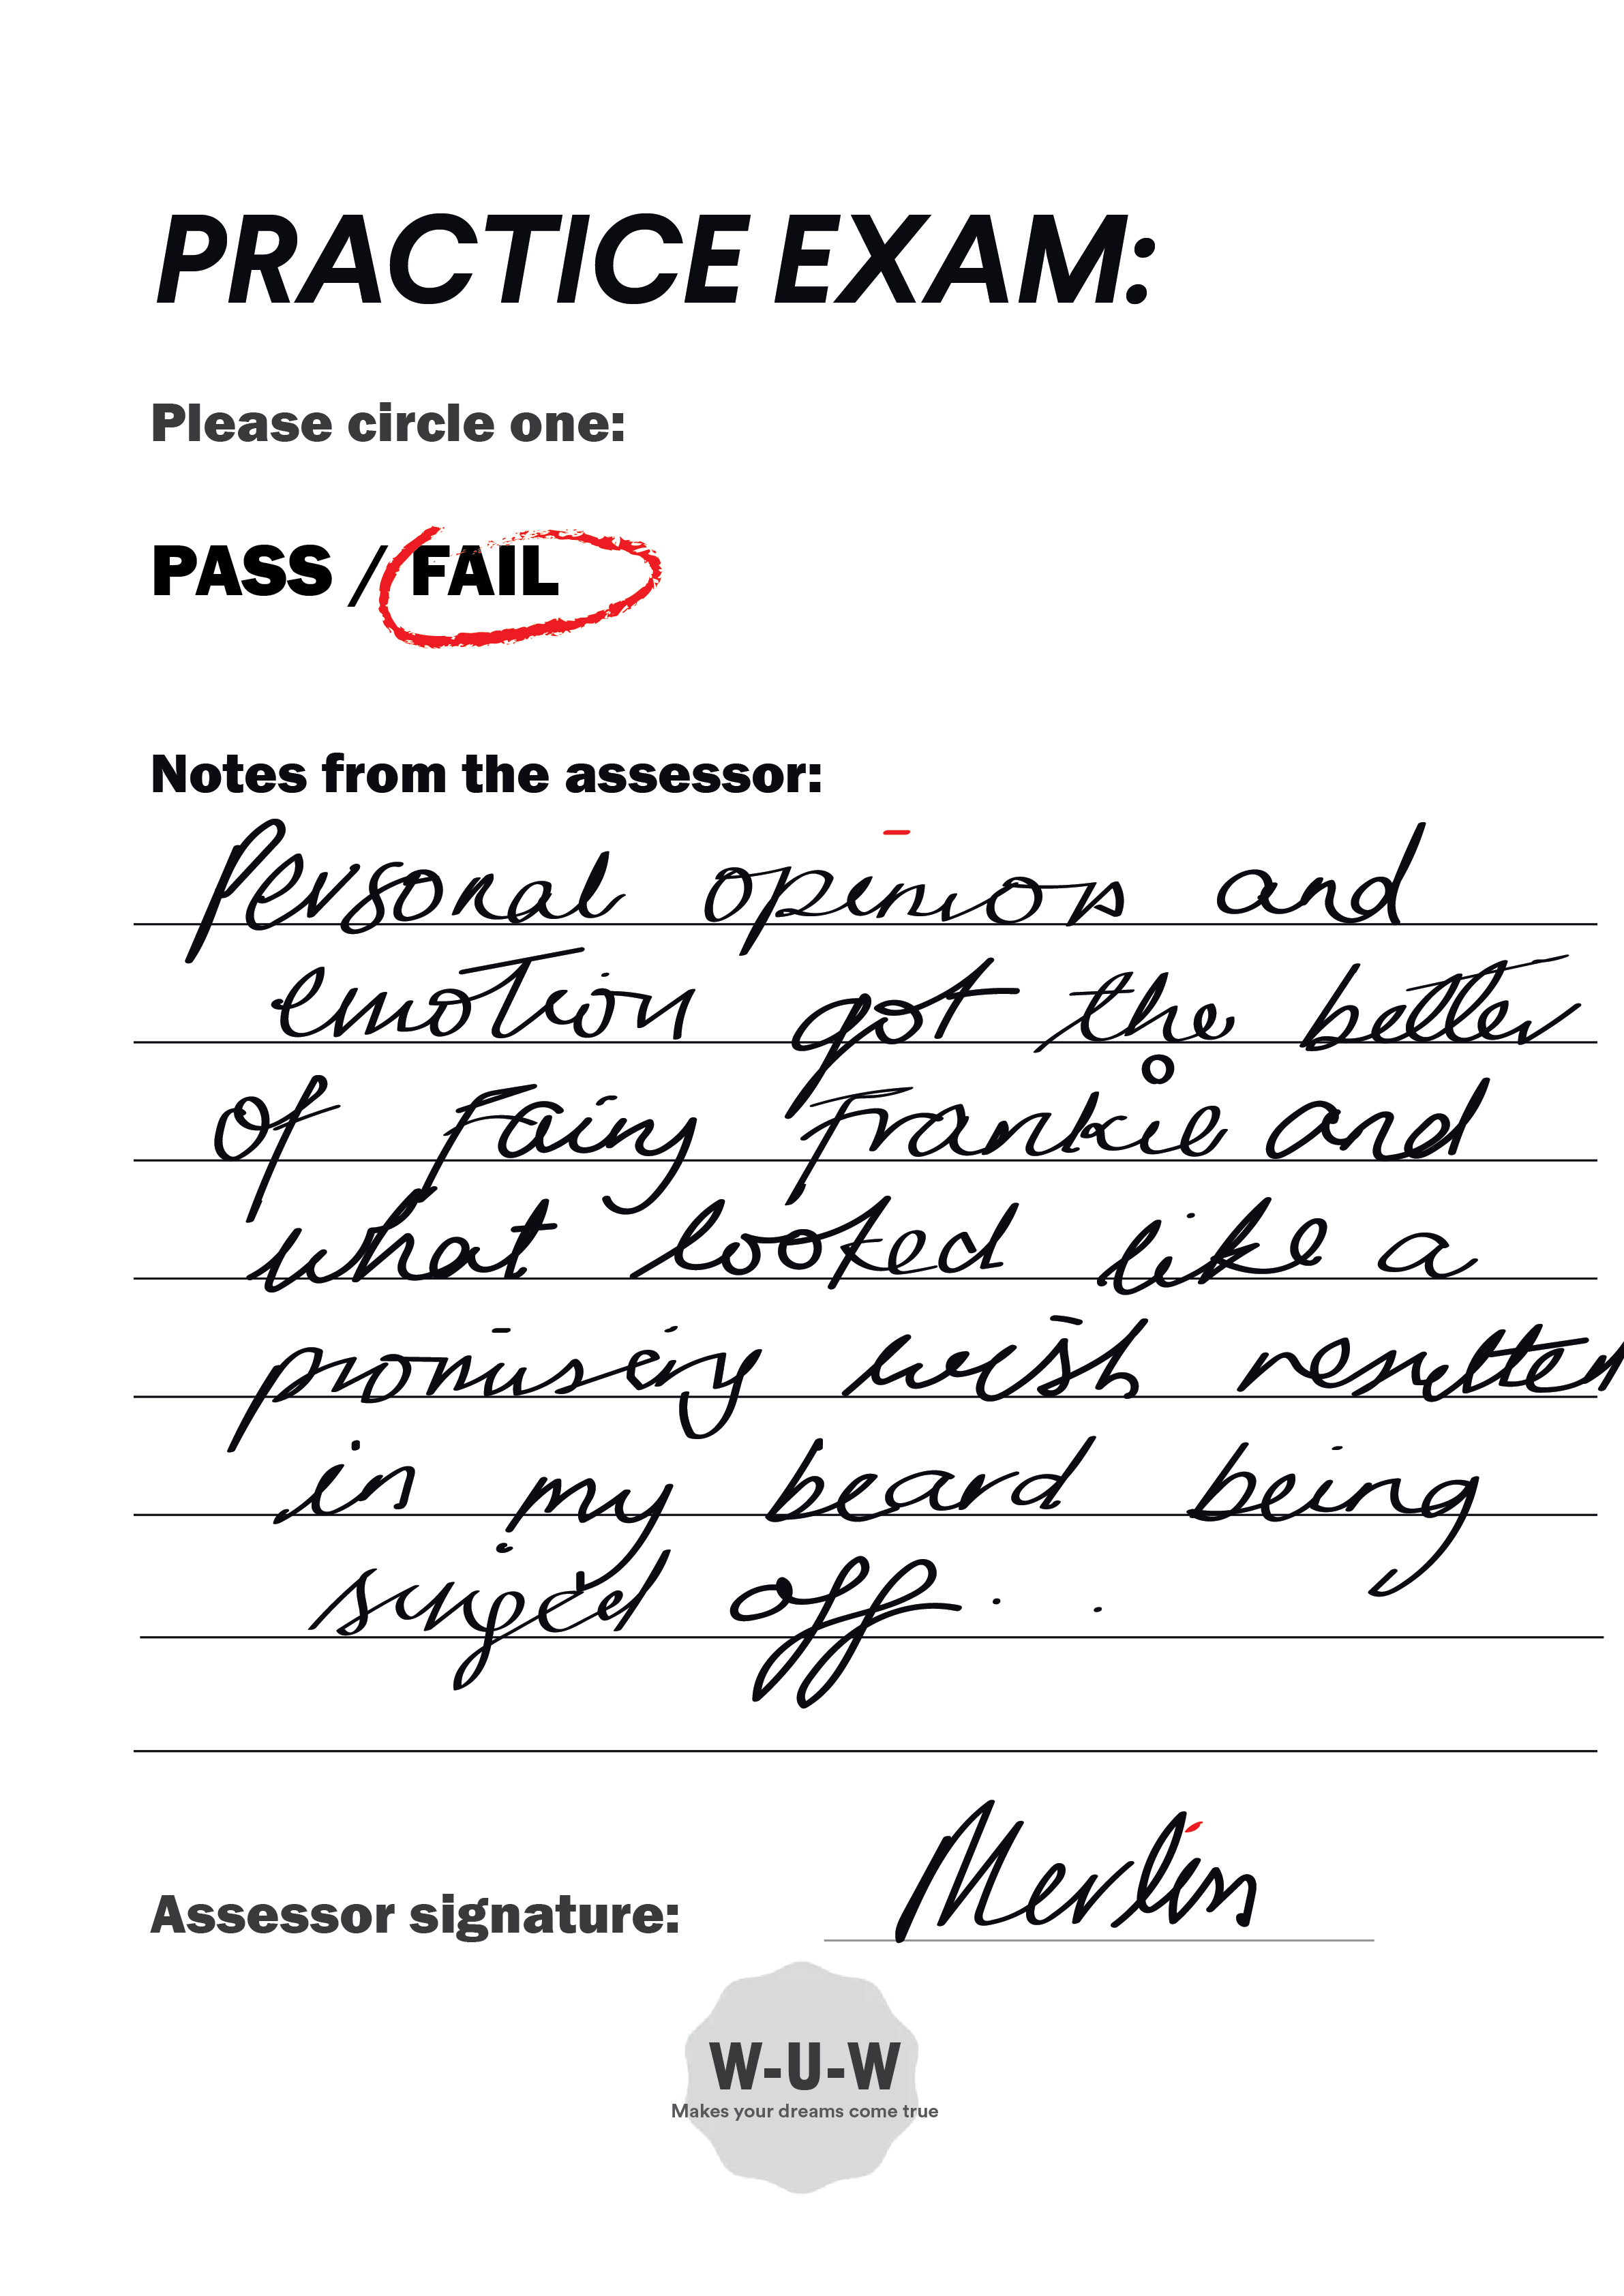 PRACTICE EXAM:
Please circle one:
PASS / FAIL
Notes from the assessor:
Personal opinion and
emotion got the better
of Fairy Frankie and
what looked like a
promising wish resulted
in my beard being
singed off..
Assessor signature: Merlin
W-U-W
Makes your dreams come true